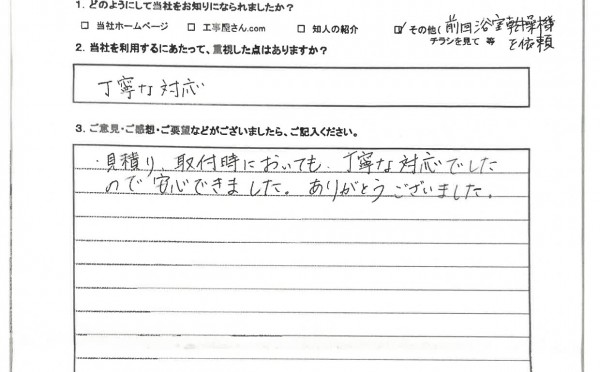 1. どのようにして当社をお知りになられましたか？
□ 当社ホームページ □ 工事屋さん.com □ 知人の紹介 ☑ その他( 前回浴室乾燥機
チラシを見て 等 を依頼
2. 当社を利用するにあたって、重視した点はありますか？
丁寧な対応
3. ご意見・ご感想・ご要望などがございましたら、ご記入ください。
・見積り、取付時においても、丁寧な対応でした
ので安心できました。ありがとうございました。